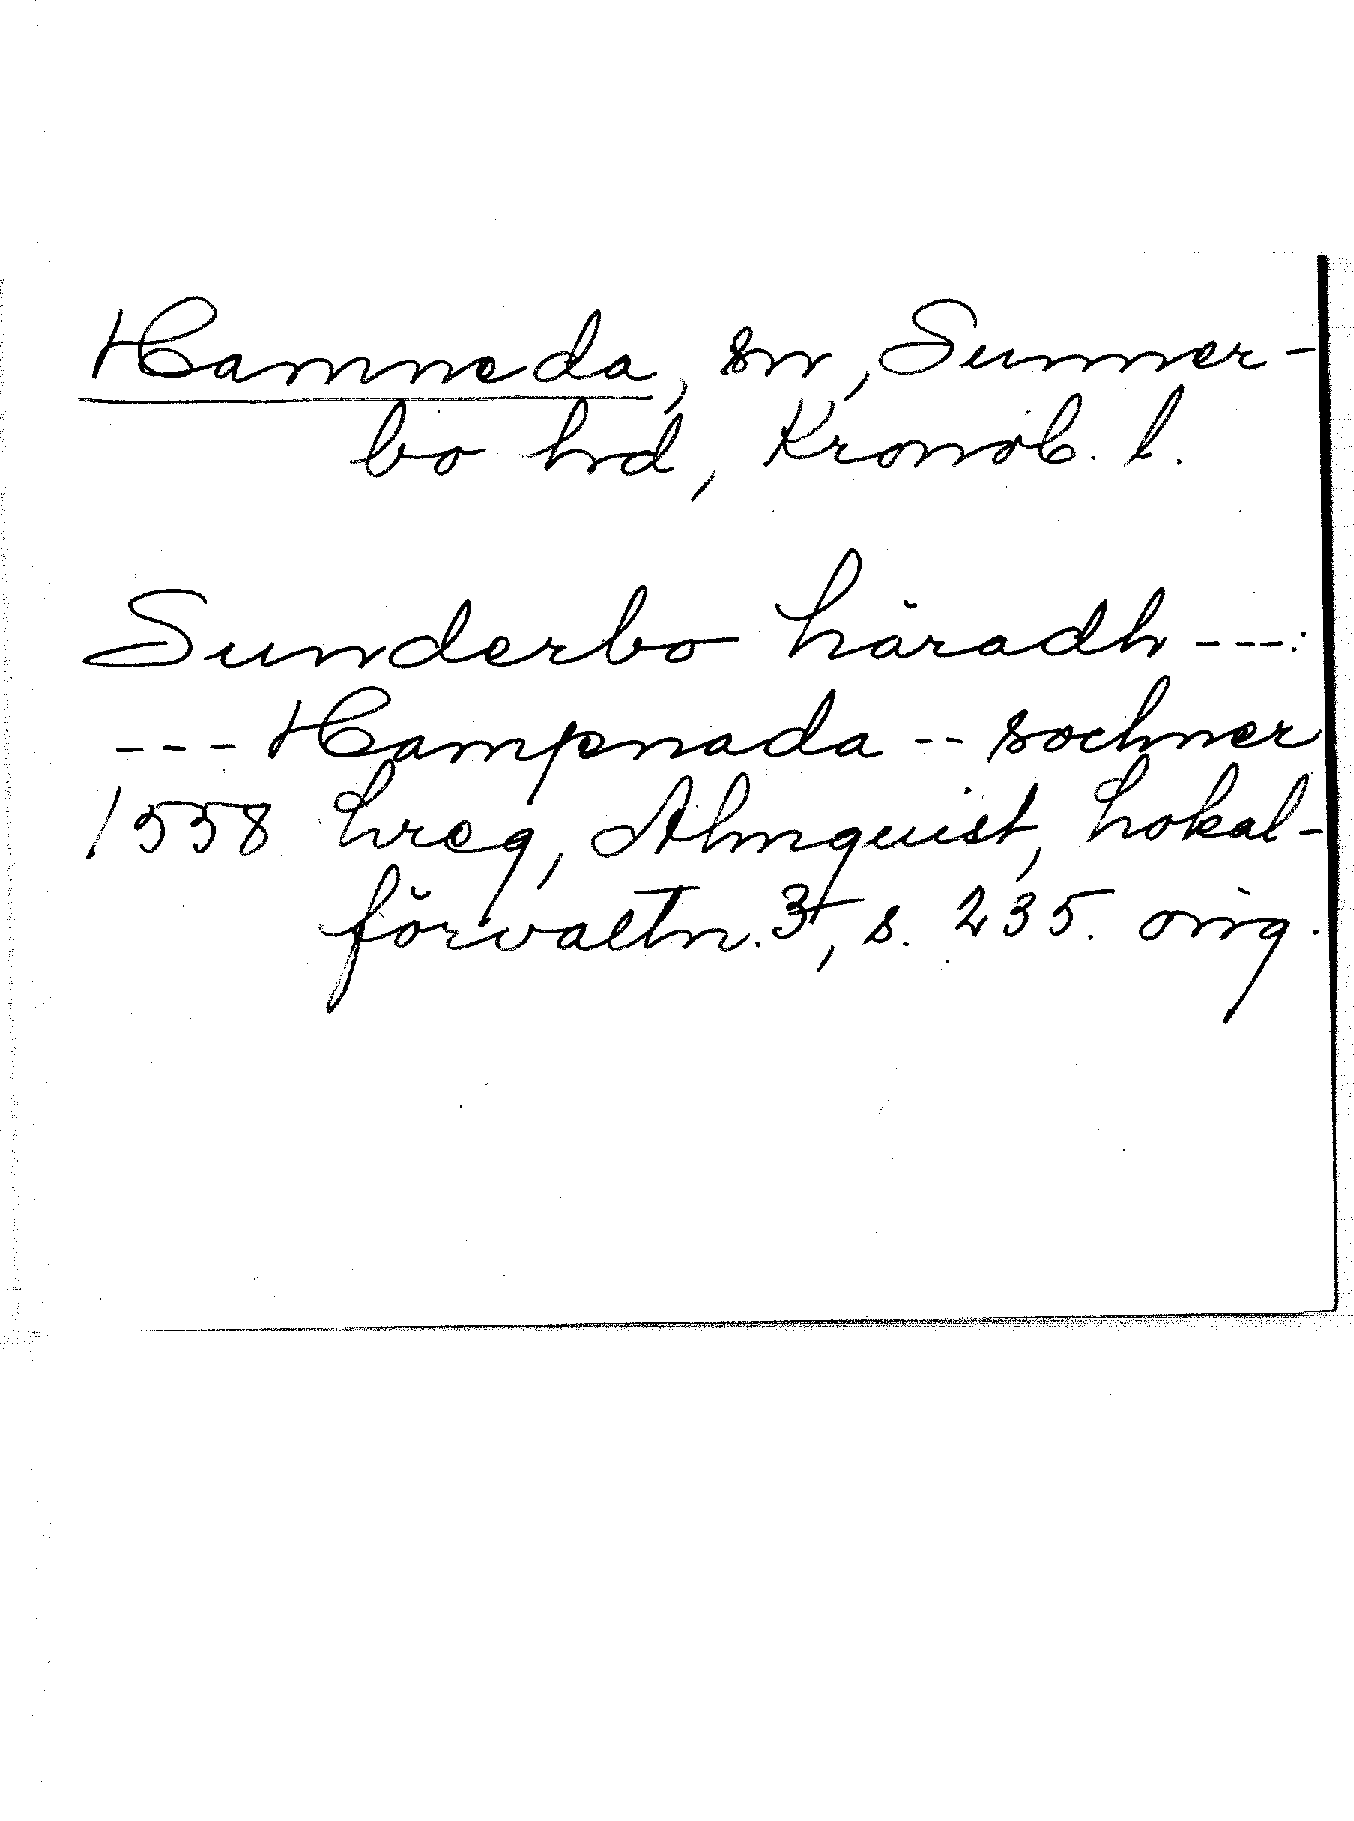 Hamneda, sn, Sunner-
bo hrd, Kronob. l.
Sunderbo häradh ---:
--- Hampnada -- sochner
1558 hreg, Almquist, Lokal-
förvaltn. 3, s. 235. orig.